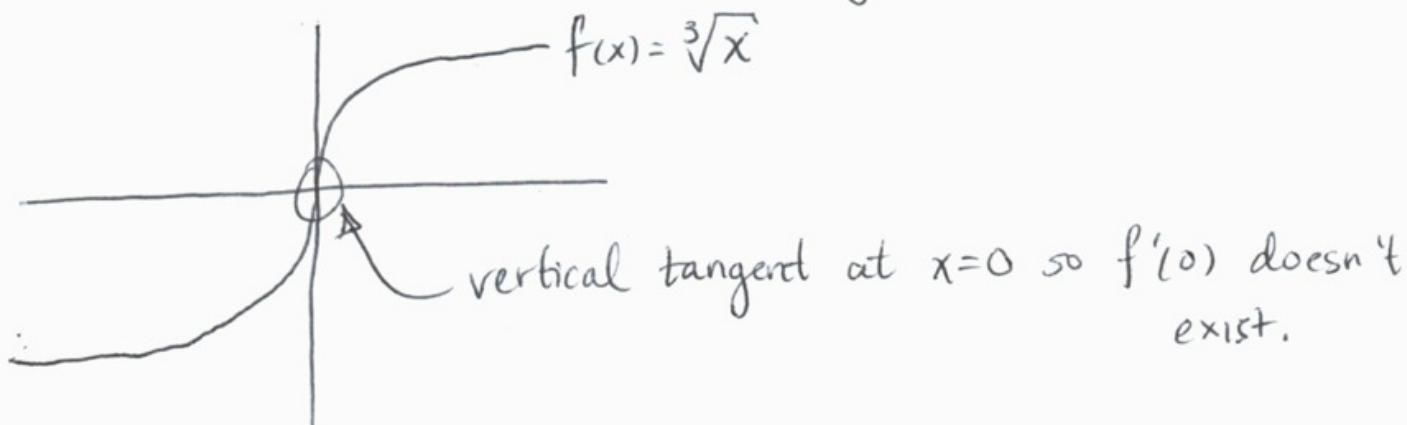 f(x) = ∛x
vertical tangent at x=0 so f'(0) doesn't
exist.